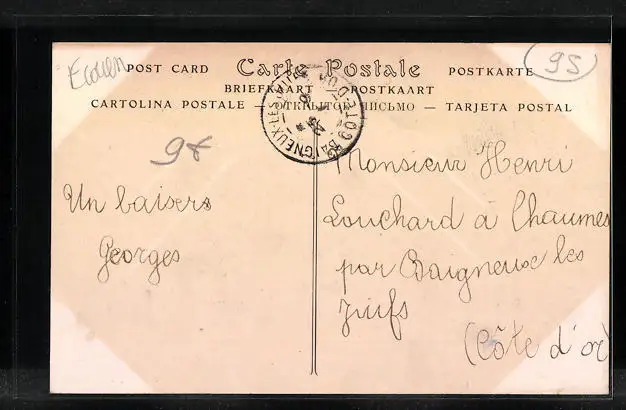 Ecouen
POST CARD Carte Postale POSTKARTE
95
BRIEFKAART — POSTKAART
CARTOLINA POSTALE — ОТКРЫТОЕ ПИСЬМО — TARJETA POSTAL
BAIGNEUX-LES-JUIFS COTE D'OR
98
Un baisers
Georges
Monsieur Henri
Louchard à Chaumes
par Baigneuse les
Juifs
(Côte d'or)